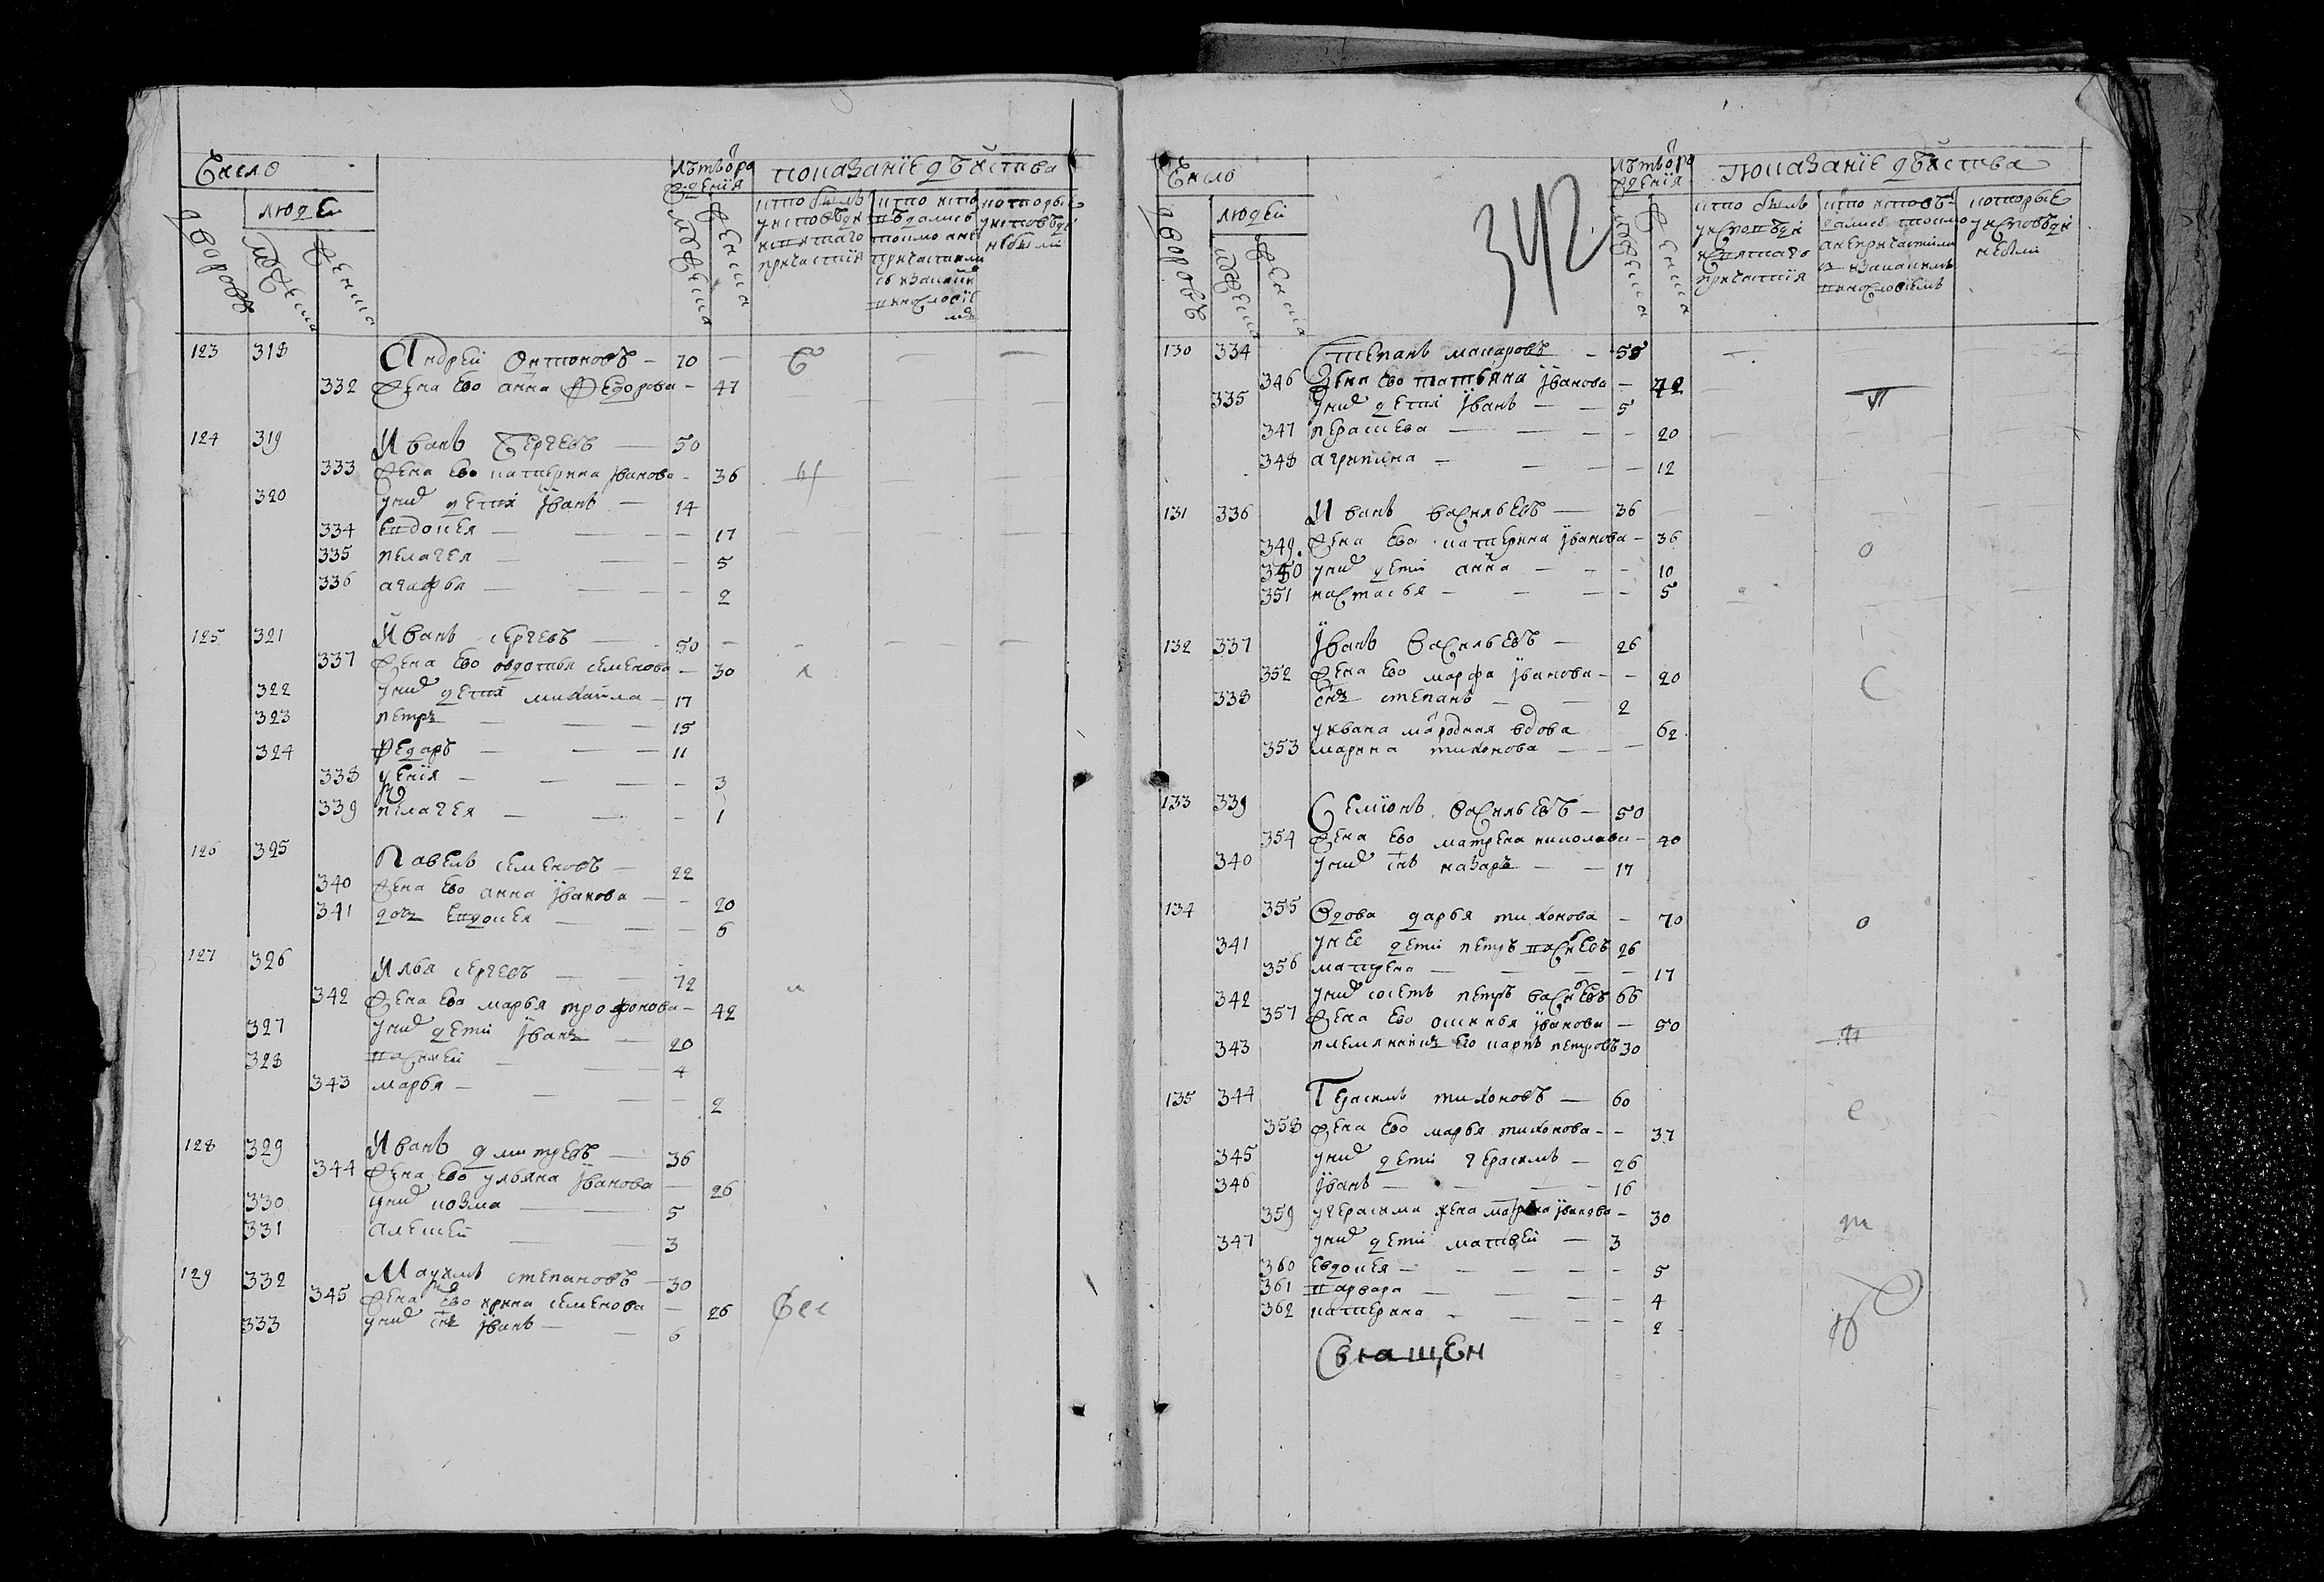 Число
людей
дворовъ
мужеска
женска
лѣтъ от рождения
мужеска
женска
показанїе дѣйства
кто былъ у исповѣди и святаго причастїя
кто исповѣдались токмо а не причастились и за какимъ винословїемъ
которые у исповѣди не были
123 318 Андрей Онтоновъ 70
332 жена ево анна Федорова 47
124 319 Иванъ Сергеевъ 50
333 жена ево катерина Іванова 36
320 у них дети Іванъ 14
334 евдокея 17
335 пелагея 5
336 агафья 2
125 321 Иванъ сергеевъ 50
337 жена ево овдотья семенова 30
322 у них дети михайла 17
323 петръ 15
324 Федаръ 11
338 3
339 пелагея 1
126 325 Павелъ семеновъ 22
340 жена ево анна Іванова 20
341 дочь евдокея 6
127 326 Илья сергеевъ 72
342 жена ева марья трофонова 42
327 у них дети Іванъ 20
328 василей 4
343 марья 2
128 329 Иванъ дмитревъ 36
344 жена ево ульяна Іванова 26
330 у них козма 5
331 алексей 3
129 332 Маѯимъ степановъ 30
345 жена ево ирина семенова 26
333 у них снъ Іванъ 6
Число
людей
дворовъ
мужеска
женска
342
лѣтъ от рождения
мужеска
женска
показанїе дѣйства
кто былъ у исповѣди и святаго причастїя
кто исповѣдались токмо а не причастились и за какимъ винословїемъ
которые у исповѣди не были
130 334 Степанъ макаровъ 58
346 Жена ево татьяна Іванова 42
335 у них дети Іванъ 5
347 перасшева 20
348 агрипина 12
131 336 Иванъ васильевъ 36
349 жена ева катерина Іванова 36
350 у них дети анна 10
351 настасья 5
132 337 Іванъ Васильевъ 26
352 жена ево марфа Іванова 20
338 снъ степанъ 2
у ивана народная вдова 62
353 марина тихонова
133 339 Семіонъ васильевъ 50
354 жена ево матрена николаева 40
340 у них снъ назаръ 17
134 355 Вдова дарья тихонова 70
341 у нее дети петръ васильевъ 26
356 матрена 17
342 у них сосетъ петръ васильевъ 66
357 жена ево оксинья Іванова 50
343 племянникъ ево карпъ петровъ 30
135 344 Герасимъ тихоновъ 60
358 жена ево марья тихонова 37
345 у них дети герасимъ 26
346 Іванъ 16
359 у герасима жена марфа Іванова 30
347 у них дети матвей 3
360 евдокея 5
361 варвара 4
362 катерина 2
Священ